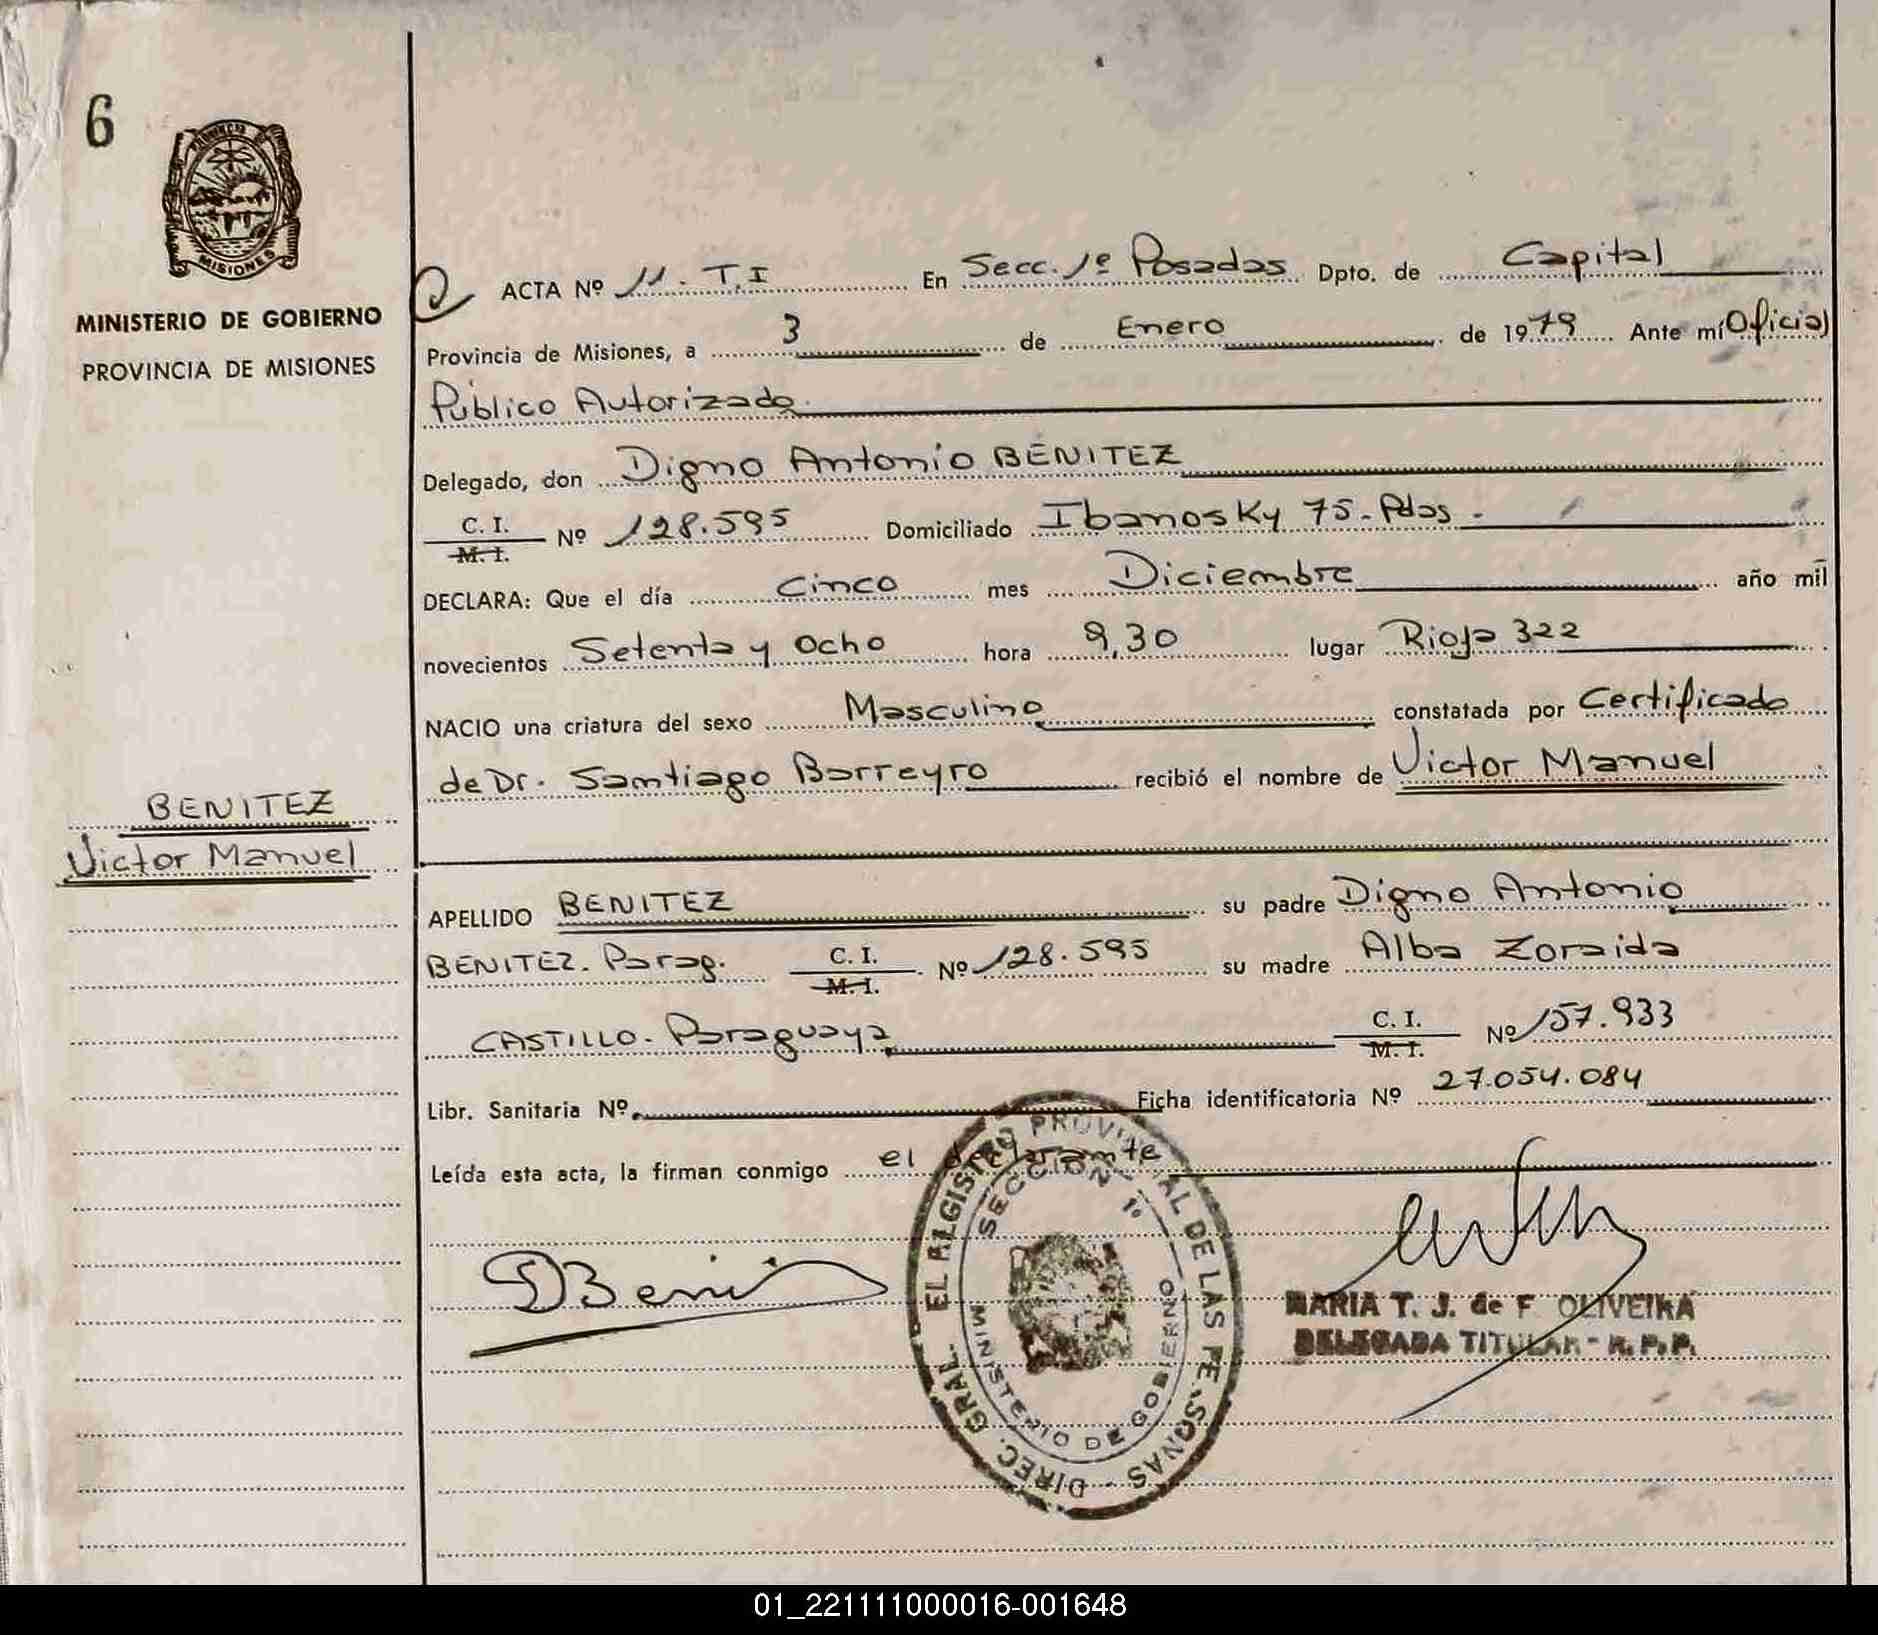 6
PROVINCIA DE
MISIONES
MINISTERIO DE GOBIERNO
PROVINCIA DE MISIONES
ACTA Nº 11 - T.I En Secc. 1º Posadas Dpto. de Capital
Provincia de Misiones, a 3 de Enero de 1979 Ante mí Oficial
Público Autorizado.
Delegado, don Digno Antonio BENITEZ
C. I.
M. I. Nº 128.595 Domiciliado Ibanosky 75 - Pdas -
DECLARA: Que el día Cinco mes Diciembre año mil
novecientos Setenta y Ocho hora 9,30 lugar Rioja 322
NACIO una criatura del sexo Masculino constatada por Certificado
de Dr. Santiago Barreyro recibió el nombre de Victor Manuel
BENITEZ
Victor Manuel
APELLIDO BENITEZ su padre Digno Antonio
BENITEZ. Parag. C. I. M. I. Nº 128.595 su madre Alba Zoraida
CASTILLO - Paraguaya C. I. M. I. Nº 157.933
Libr. Sanitaria Nº Ficha identificatoria Nº 27.054.084
Leída esta acta, la firman conmigo el declarante
DIREC. GRAL. EL REGISTRO PROVINCIAL DE LAS PERSONAS -
SECCION 1º
MINISTERIO DE GOBIERNO
MARIA T. J. de F. OLIVEIRA
DELEGADA TITULAR - R. P. P.
01_221111000016-001648